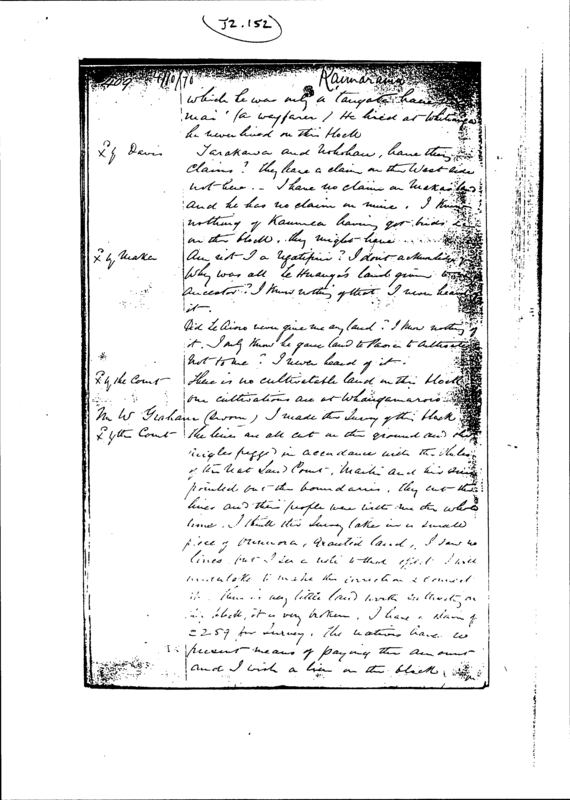 J2.152
409 4/10/70 Kaimarama
which he was only a tangata haere
mai' (a wayfarer) He lived at Whitianga
he never lived on this block
X by Davis Tarakawa and have they
claims? they have a claim on the West side
not here. - I have no claim on Maka's land
and he has no claim on mine. I know
nothing of having got birds
on this block. they might have
X by Maka Am not I a Ngatipiri? I dont
Why was all Te Huanga's land given to
ancestor? I know nothing of that I never heard
it.
Did Te Airo never give me any land? I know nothing of
it. I only know he gave land to to
Not to me? I never heard of it.
X by the Court There is no cultivatable land on this block
our cultivations are at Whangamaroro
Mr W Graham (Sworn) I made the Survey of this block
X by the Court The lines are all cut on the ground and the
angles pegged in accordance with the Rules
of the Nat Land Court. and his
pointed out the boundaries. they cut the
lines and their people were with me the whole
time. I think this Survey takes in a small
piece of granted land, I saw no
lines but I see a note to that effect I will
undertake to make the correction &
it. There is very little land worth on
block, it is very broken. I have a claim of
£259 for Survey. The natives have no
present means of paying the amount
and I wish a lien on the block.